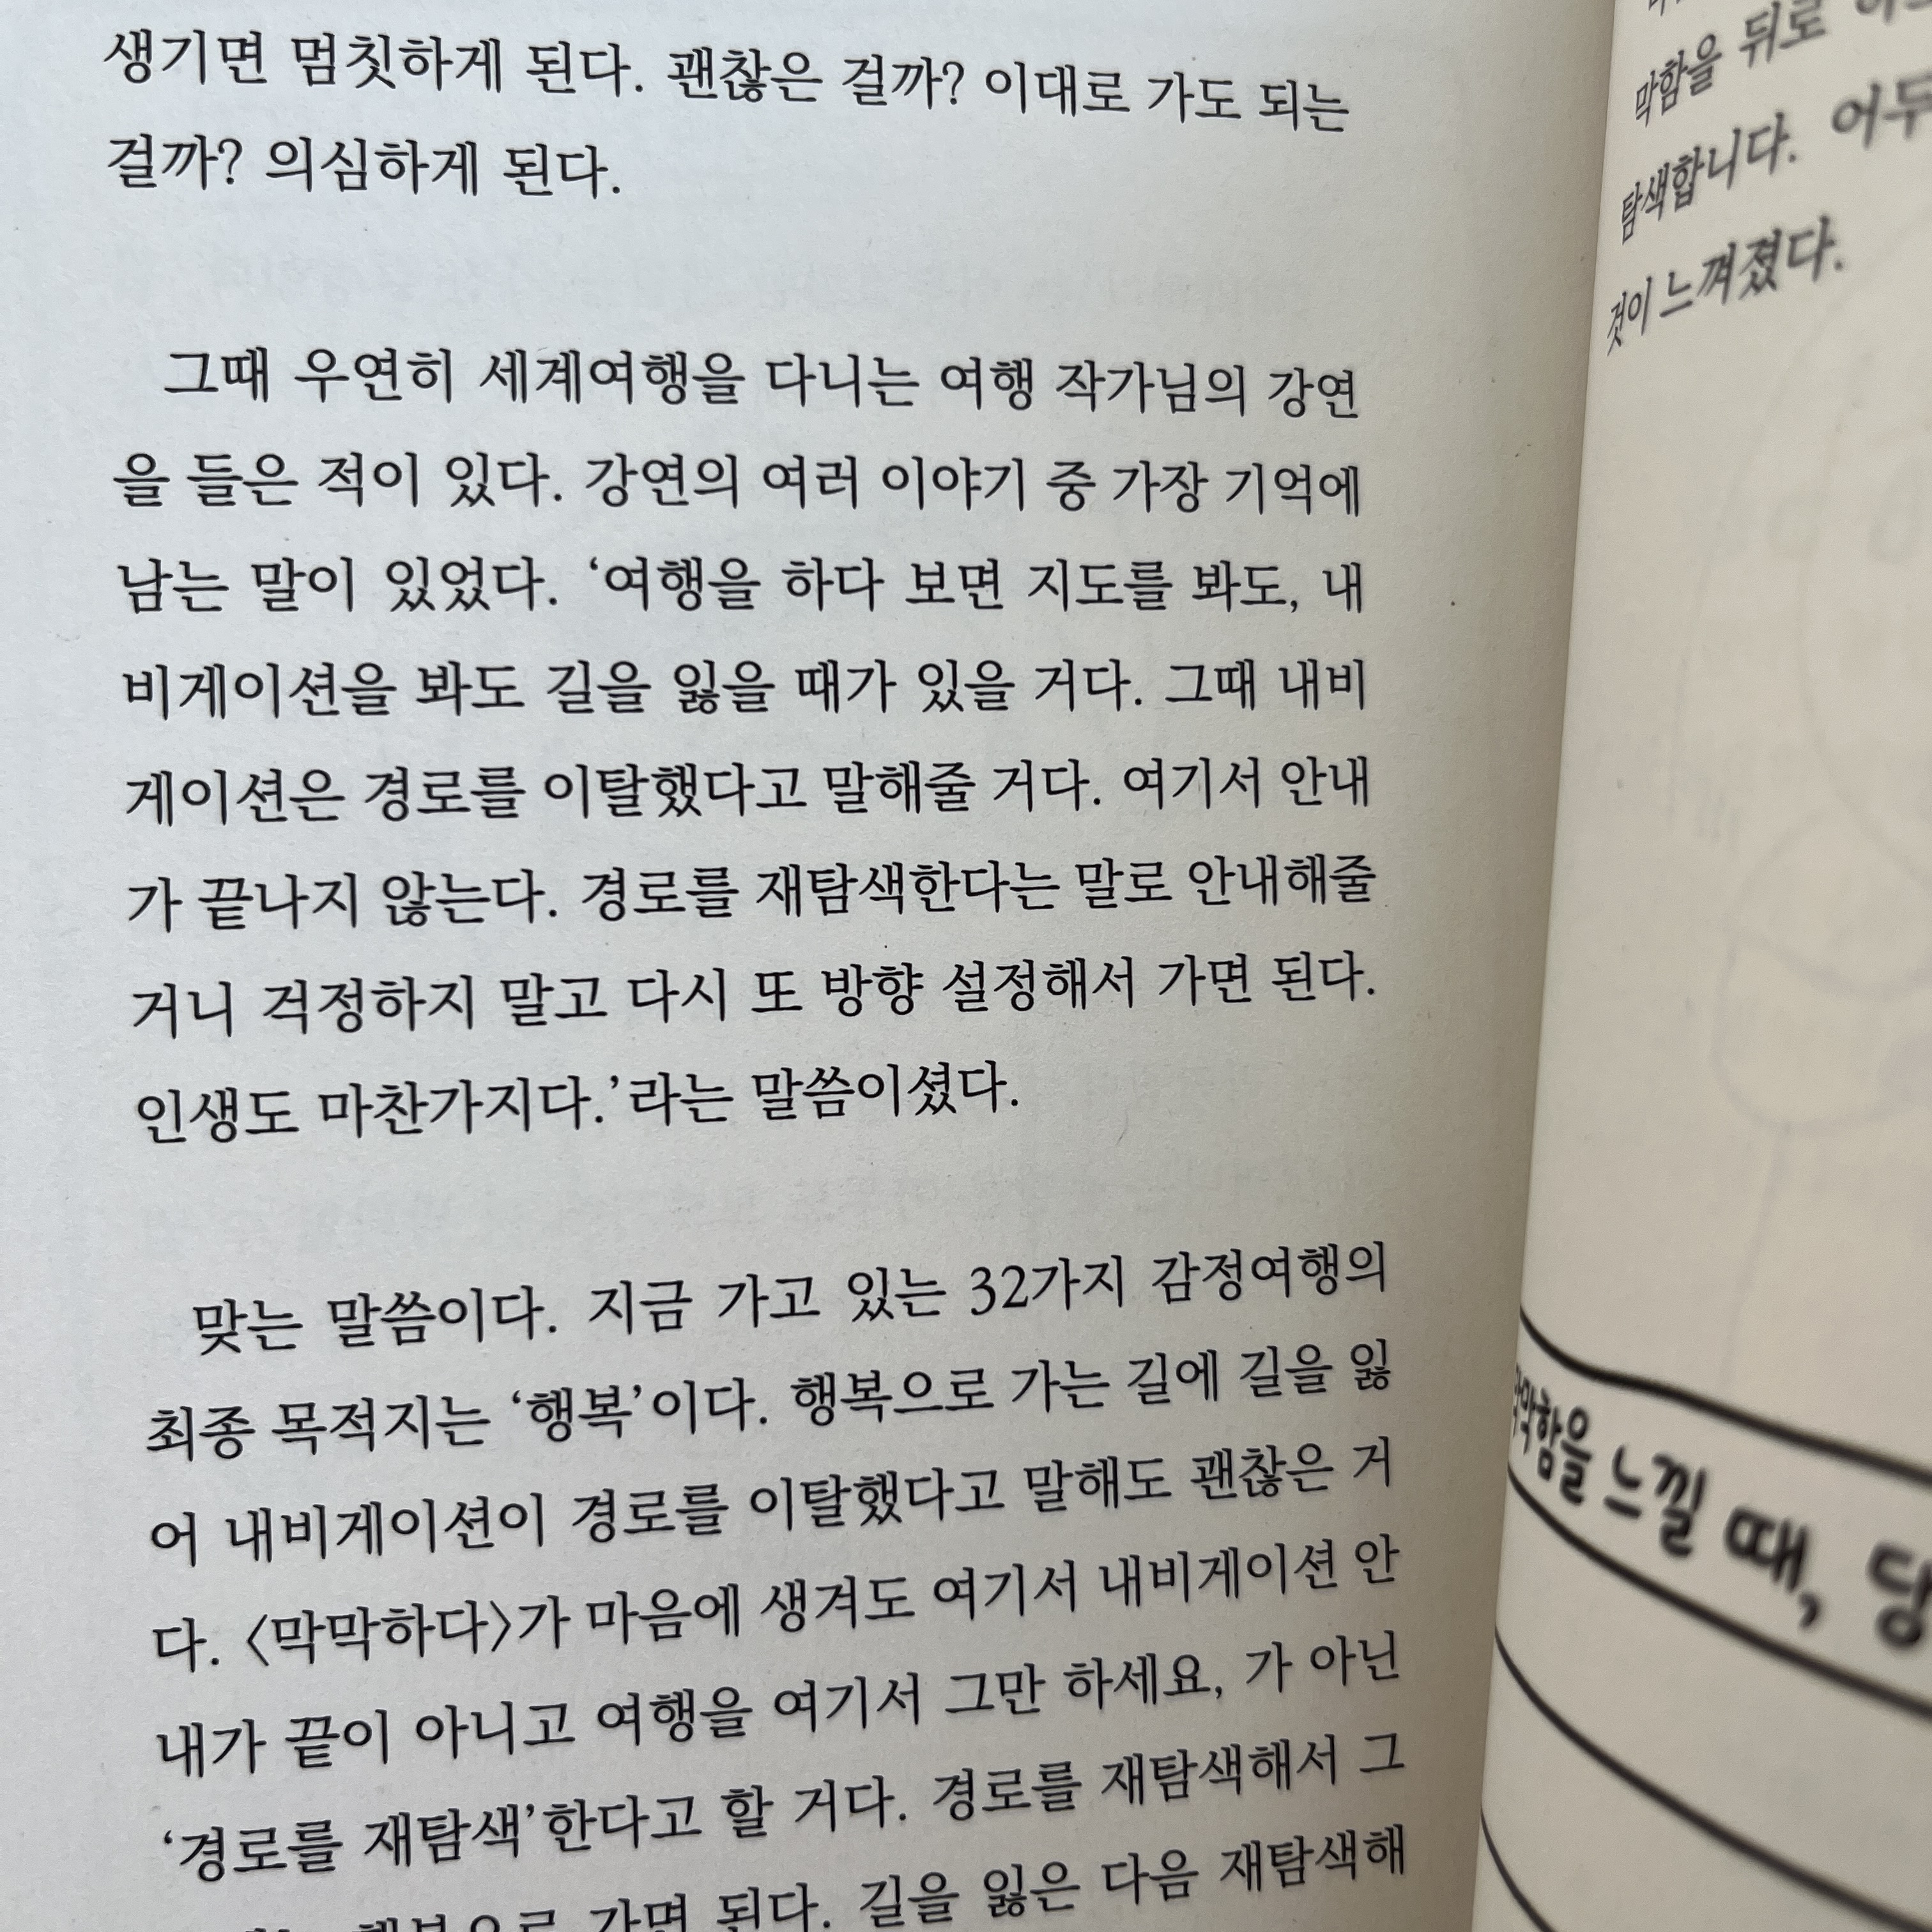 생기면 멈칫하게 된다. 괜찮은 걸까? 이대로 가도 되는
걸까? 의심하게 된다.
그때 우연히 세계여행을 다니는 여행 작가님의 강연
을 들은 적이 있다. 강연의 여러 이야기 중 가장 기억에
남는 말이 있었다. ‘여행을 하다 보면 지도를 봐도, 내
비게이션을 봐도 길을 잃을 때가 있을 거다. 그때 내비
게이션은 경로를 이탈했다고 말해줄 거다. 여기서 안내
가 끝나지 않는다. 경로를 재탐색한다는 말로 안내해줄
거니 걱정하지 말고 다시 또 방향 설정해서 가면 된다.
인생도 마찬가지다.’라는 말씀이셨다.
맞는 말씀이다. 지금 가고 있는 32가지 감정여행의
최종 목적지는 ‘행복’이다. 행복으로 가는 길에 길을 잃
어 내비게이션이 경로를 이탈했다고 말해도 괜찮은 거
다. 〈막막하다〉가 마음에 생겨도 여기서 내비게이션 안
내가 끝이 아니고 여행을 여기서 그만 하세요, 가 아닌
‘경로를 재탐색’한다고 할 거다. 경로를 재탐색해서 그
행복으로 가면 된다. 길을 잃은 다음 재탐색해
막함을 뒤로
탐색합니다. 어두
것이 느껴졌다.
막막함을 느낄 때, 당